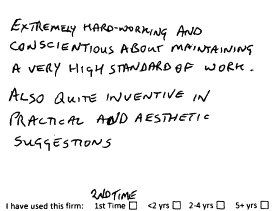 EXTREMELY HARD-WORKING AND
CONSCIENTIOUS ABOUT MAINTAINING
A VERY HIGH STANDARD OF WORK.
ALSO QUITE INVENTIVE IN
PRACTICAL AND AESTHETIC
SUGGESTIONS
2ND TIME
I have used this firm: 1st Time ☐ <2 yrs ☐ 2-4 yrs ☐ 5+ yrs ☐